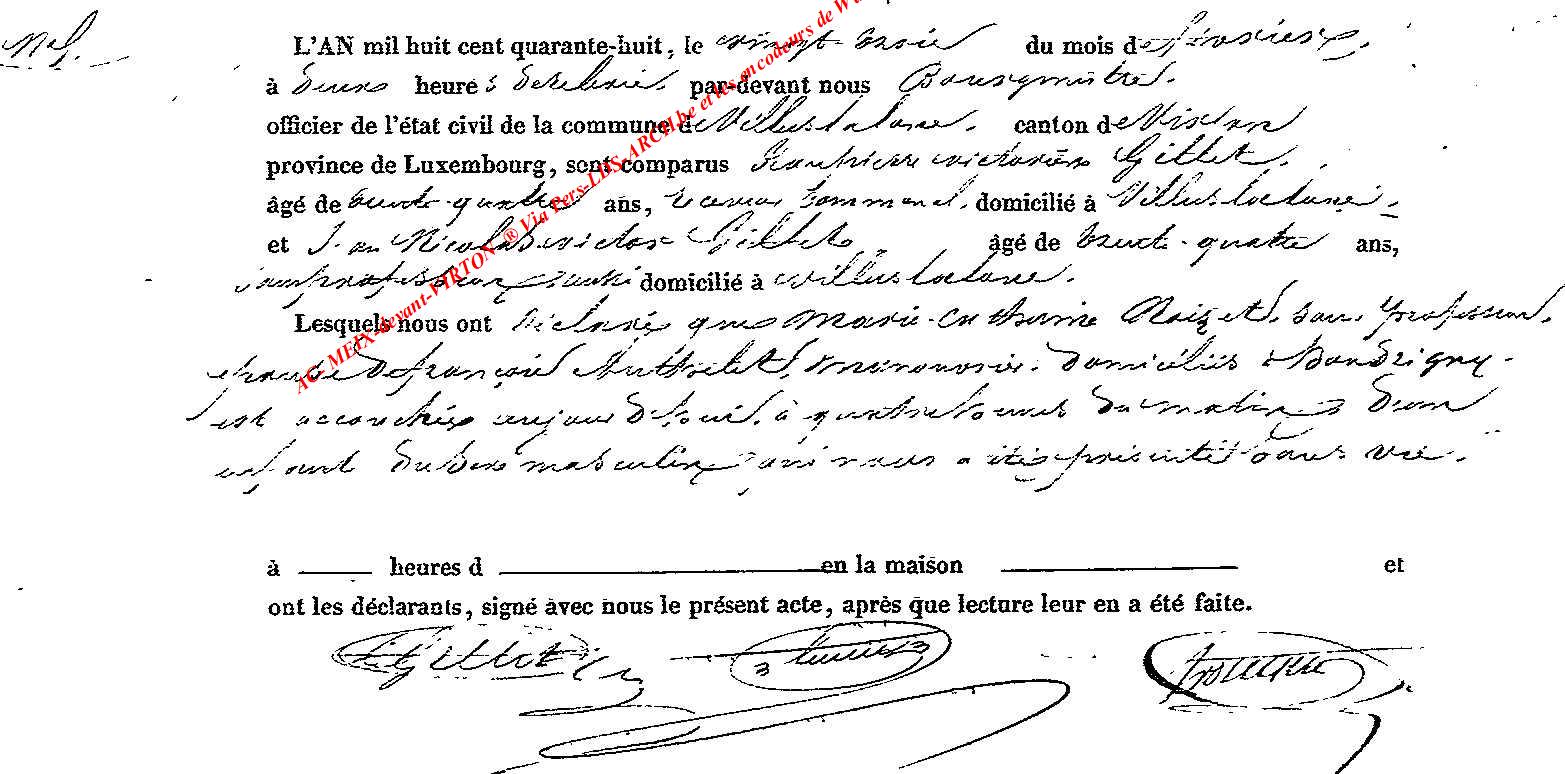 L'AN mil huit cent quarante-huit, le vingt trois du mois de février,
à deux heures de relevé. par-devant nous Bourgmestre.
officier de l'état civil de la commune de Villers la loue. canton de Virton
province de Luxembourg, sont comparus Jean pierre victorien Gillet.
âgé de trente quatre ans, receveur communal. domicilié à Villers la loue.
et Jean Nicolas victor Gillet âgé de trente quatre ans,
sans profession domicilié à villers la loue.
Lesquels nous ont déclaré que Marie-Catherine sans profession.
épouse de françois domiciliés à
est accouchée aujourd'hui. à quatre heures du matin d'un
enfant du sexe masculin qui nous a été présenté sans vie.
à heures d en la maison et
ont les déclarants, signé avec nous le présent acte, après que lecture leur en a été faite.
Gillet
AC MEIX-devant-VIRTON ® Via Pers-LDS-ARCH.be et les encodeurs de